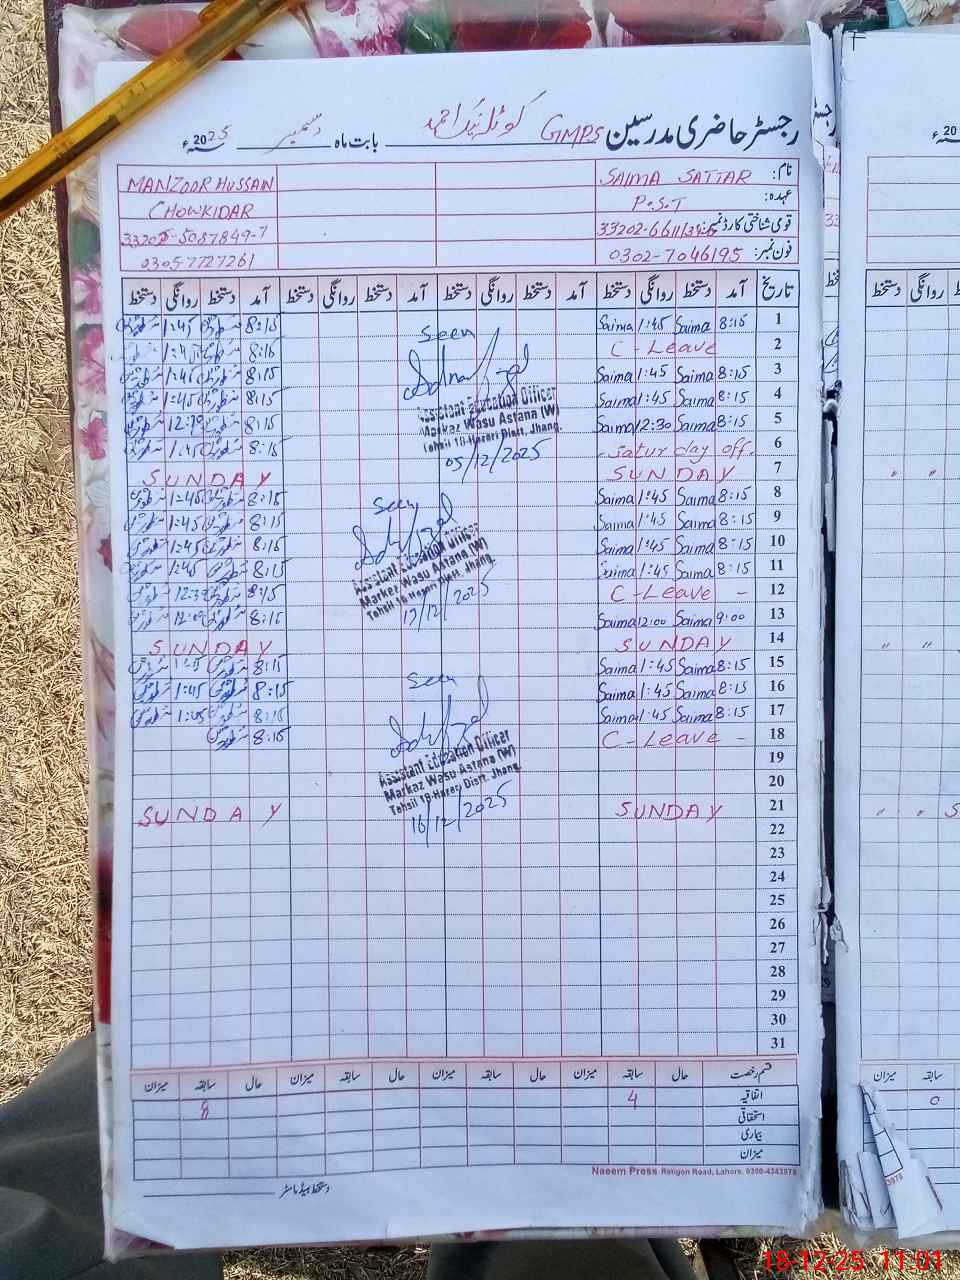 رجسٹر حاضری مدرسین GMPS کوٹلہ نذیر احمد بابت ماہ دسمبر 2025ء
نام: SAIMA SATTAR MANZOOR HUSSAIN
عہدہ: P.S.T CHOWKIDAR
قومی شناختی کارڈ نمبر
فون نمبر: 0302-7046195 0305-7727261
تاریخ آمد دستخط روانگی دستخط آمد دستخط روانگی دستخط آمد دستخط روانگی دستخط آمد دستخط روانگی دستخط
1 8:15 Saima 1:45 Saima 8:15 1:45
2 C-Leave 8:15 1:45
3 8:15 Saima 1:45 Saima 8:15 1:45
4 8:15 Saima 1:45 Saima 8:15 1:45
5 8:15 Saima 12:30 Saima 8:15
6 Saturday off. 8:15 1:45
7 SUNDAY SUNDAY
8 8:15 Saima 1:45 Saima 8:15 1:45
9 8:15 Saima 1:45 Saima 8:15 1:45
10 8:15 Saima 1:45 Saima 8:15 1:45
11 8:15 Saima 1:45 Saima 8:15 1:45
12 C-Leave - 8:15
13 9:00 Saima 12:00 Saima 8:15
14 SUNDAY SUNDAY
15 8:15 Saima 1:45 Saima 8:15 1:45
16 8:15 Saima 1:45 Saima 8:15 1:45
17 8:15 Saima 1:45 Saima 8:15 1:45
18 C-Leave - 8:15
19
20
21 SUNDAY SUNDAY
22
23
24
25
26
27
28
29
30
31
Seen
Assistant Education Officer
Markaz Wasu Astana (W)
Tehsil 18-Hazari Distt. Jhang.
05/12/2025
Seen
Assistant Education Officer
Markaz Wasu Astana (W)
Tehsil 18-Hazari Distt. Jhang.
Seen
Assistant Education Officer
Markaz Wasu Astana (W)
Tehsil 18-Hazari Distt. Jhang.
16/12/2025
قسم رخصت حال سابقہ میزان حال سابقہ میزان حال سابقہ میزان حال سابقہ میزان
اتفاقیہ 4 8
استحقاقی
بیماری
میزان
Naeem Press Ratigon Road, Lahore. 0300-4343978
دستخط ہیڈ ماسٹر
20ء
دستخط روانگی دستخط
" "
" "
" " S
میزان سابقہ
0
18-12-25 11:01